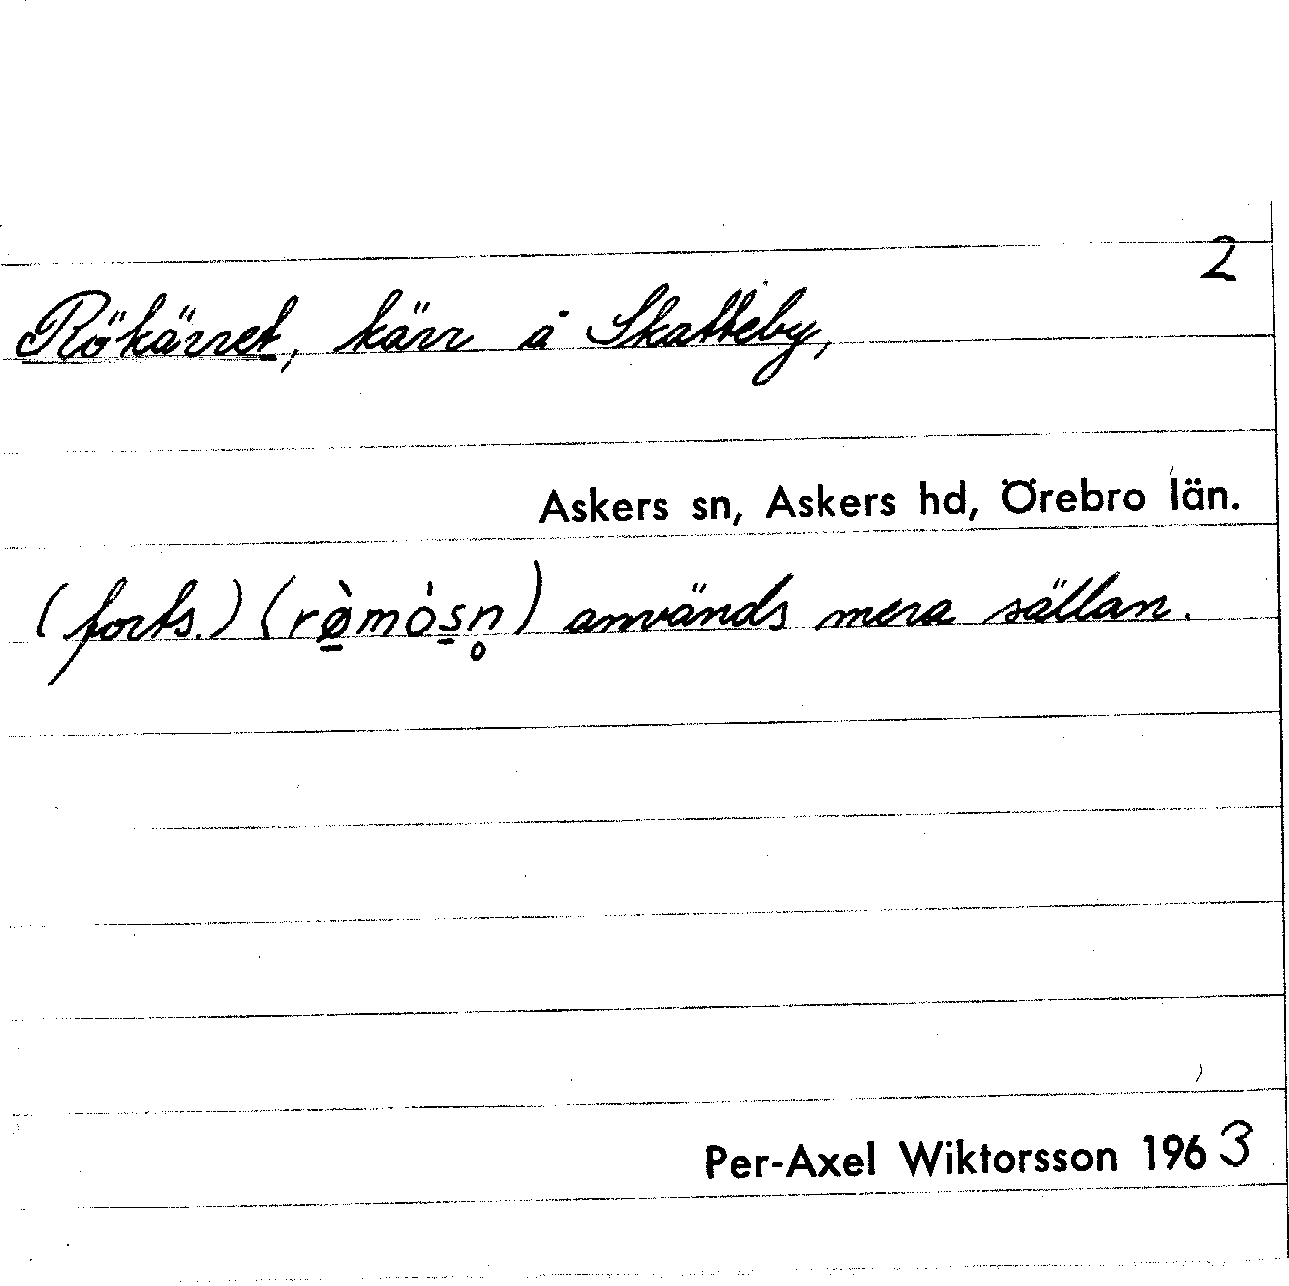 2
Rökärret, kärr å Skatteby,
Askers sn, Askers hd, Örebro län.
(forts.) (rø̱̀mós̱n̥) används mera sällan.
Per-Axel Wiktorsson 1963